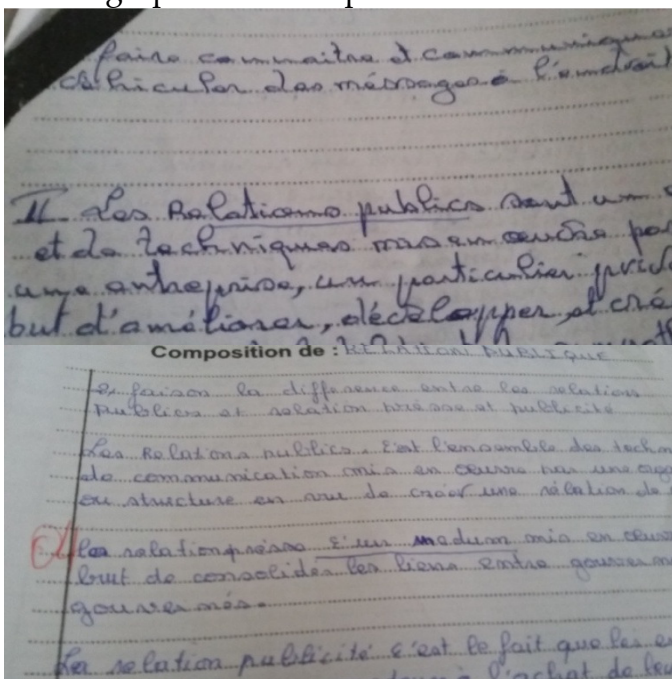 faire connaitre et communiquer
véhiculer des méssages à l'endroit
II Les Relations publics sont un
et de techniques mis en œuvre par
une entreprise, un particulier
but d'améliorer, développer, et
Composition de : RELATION PUBLIQUE
faison la différence entre les relations
publics et relation presse et publicité
Les Relations publics. c'est l'ensemble des
de communication mis en œuvre par une
ou structure en vu de créer une rélation de
Les relation presse c'un medum mis en
brut de consolider les liens entre
gouvernés.
La relation publicité c'est le fait que les
l'achat de